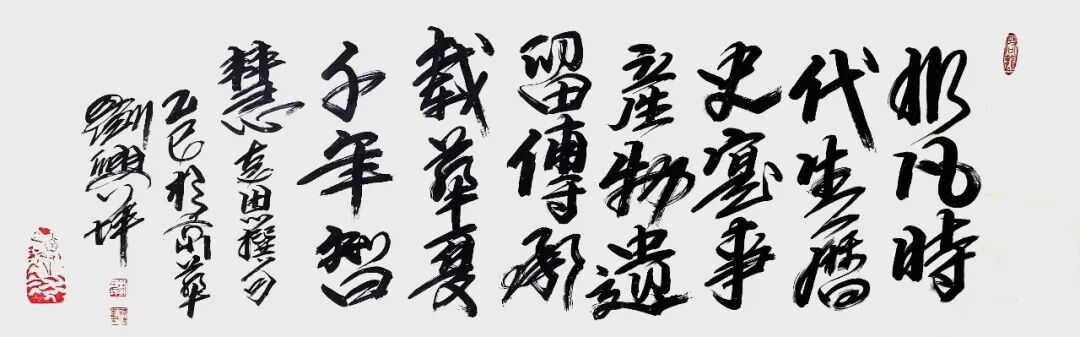 非凡時
代生曆
史寔事
產物遺
留傳承
載華夏
千年智
慧 撰句
乙巳於京華
劉興